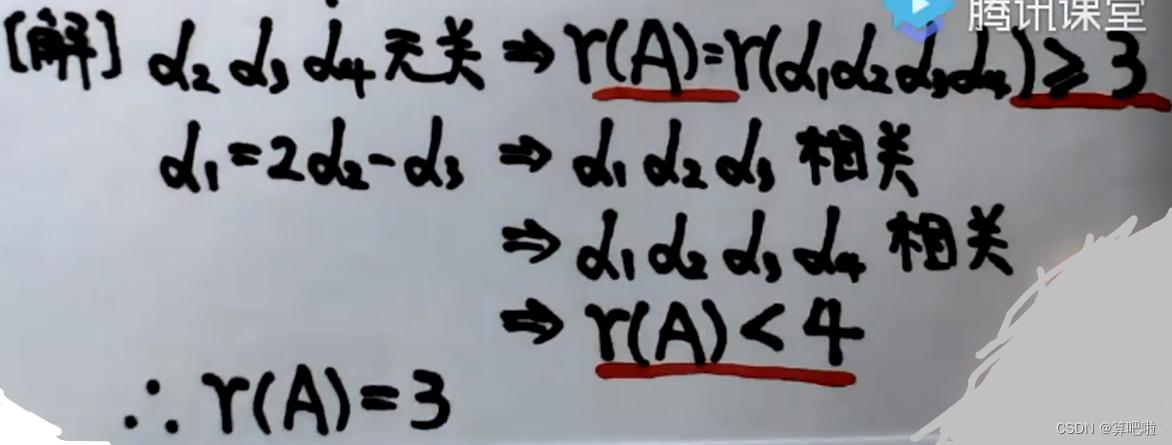 腾讯课堂
[解] α₂ α₃ α₄ 无关 ⇒ r(A)=r(α₁α₂α₃α₄)≥3
α₁=2α₂-α₃ ⇒ α₁ α₂ α₃ 相关
⇒ α₁ α₂ α₃ α₄ 相关
⇒ r(A)<4
∴ r(A)=3
CSDN @算吧啦